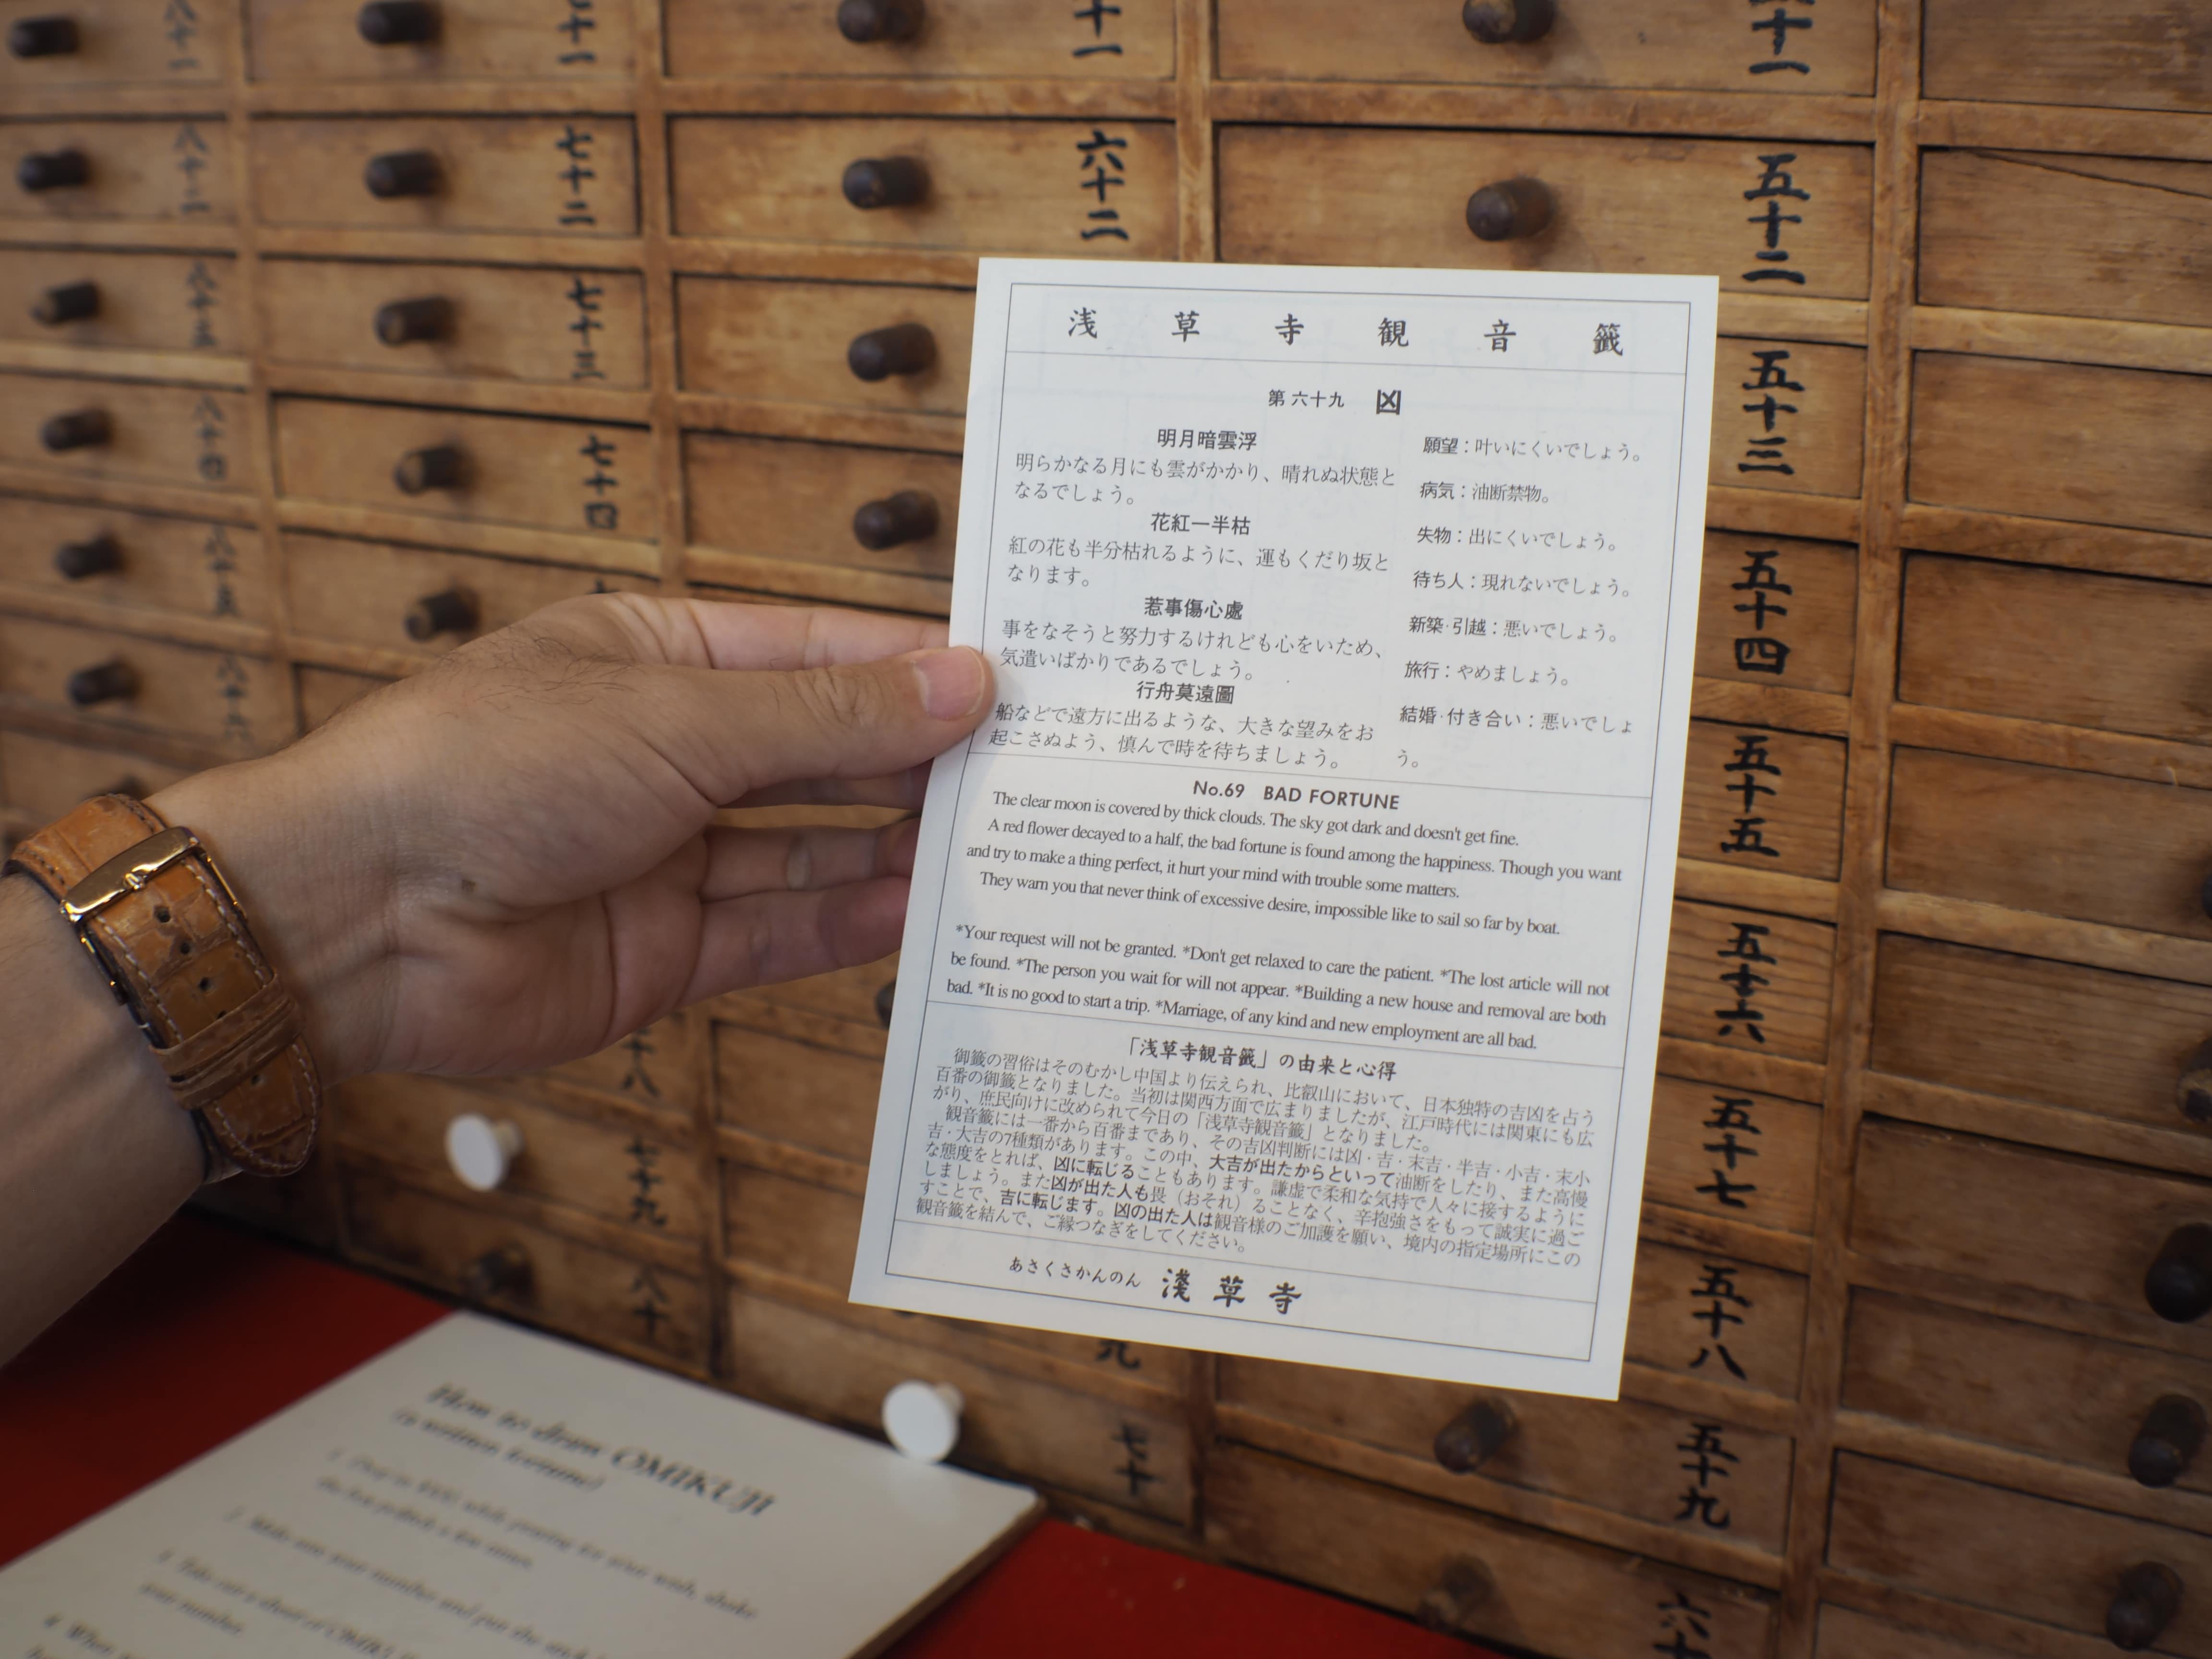 八十一
七十一
十一
五十一
八十二
七十二
六十二
五十二
八十三
七十三
五十三
八十四
七十四
五十四
八十五
五十五
五十六
五十七
五十八
七十九
五十九
八十
七十
浅草寺観音籤
第六十九 凶
明月暗雲浮
明らかなる月にも雲がかかり、晴れぬ状態と
なるでしょう。
花紅一半枯
紅の花も半分枯れるように、運もくだり坂と
なります。
惹事傷心處
事をなそうと努力するけれども心をいため、
気遣いばかりであるでしょう。
行舟莫遠圖
船などで遠方に出るような、大きな望みをお
起こさぬよう、慎んで時を待ちましょう。
願望：叶いにくいでしょう。
病気：油断禁物。
失物：出にくいでしょう。
待ち人：現れないでしょう。
新築·引越：悪いでしょう。
旅行：やめましょう。
結婚·付き合い：悪いでしょ
う。
No.69 BAD FORTUNE
The clear moon is covered by thick clouds. The sky got dark and doesn't get fine.
A red flower decayed to a half, the bad fortune is found among the happiness. Though you want
and try to make a thing perfect, it hurt your mind with trouble some matters.
They warn you that never think of excessive desire, impossible like to sail so far by boat.
*Your request will not be granted. *Don't get relaxed to care the patient. *The lost article will not
be found. *The person you wait for will not appear. *Building a new house and removal are both
bad. *It is no good to start a trip. *Marriage, of any kind and new employment are all bad.
「浅草寺観音籤」の由来と心得
御籤の習俗はそのむかし中国より伝えられ、比叡山において、日本独特の吉凶を占う
百番の御籤となりました。当初は関西方面で広まりましたが、江戸時代には関東にも広
がり、庶民向けに改められて今日の「浅草寺観音籤」となりました。
観音籤には一番から百番まであり、その吉凶判断には凶·吉·末吉·半吉·小吉·末小
吉·大吉の7種類があります。この中、大吉が出たからといって油断をしたり、また高慢
な態度をとれば、凶に転じることもあります。謙虚で柔和な気持で人々に接するように
しましょう。また凶が出た人も畏（おそれ）ることなく、辛抱強さをもって誠実に過ご
すことで、吉に転じます。凶の出た人は観音様のご加護を願い、境内の指定場所にこの
観音籤を結んで、ご縁つなぎをしてください。
あさくさかんのん 淺草寺
How to draw OMIKUJI